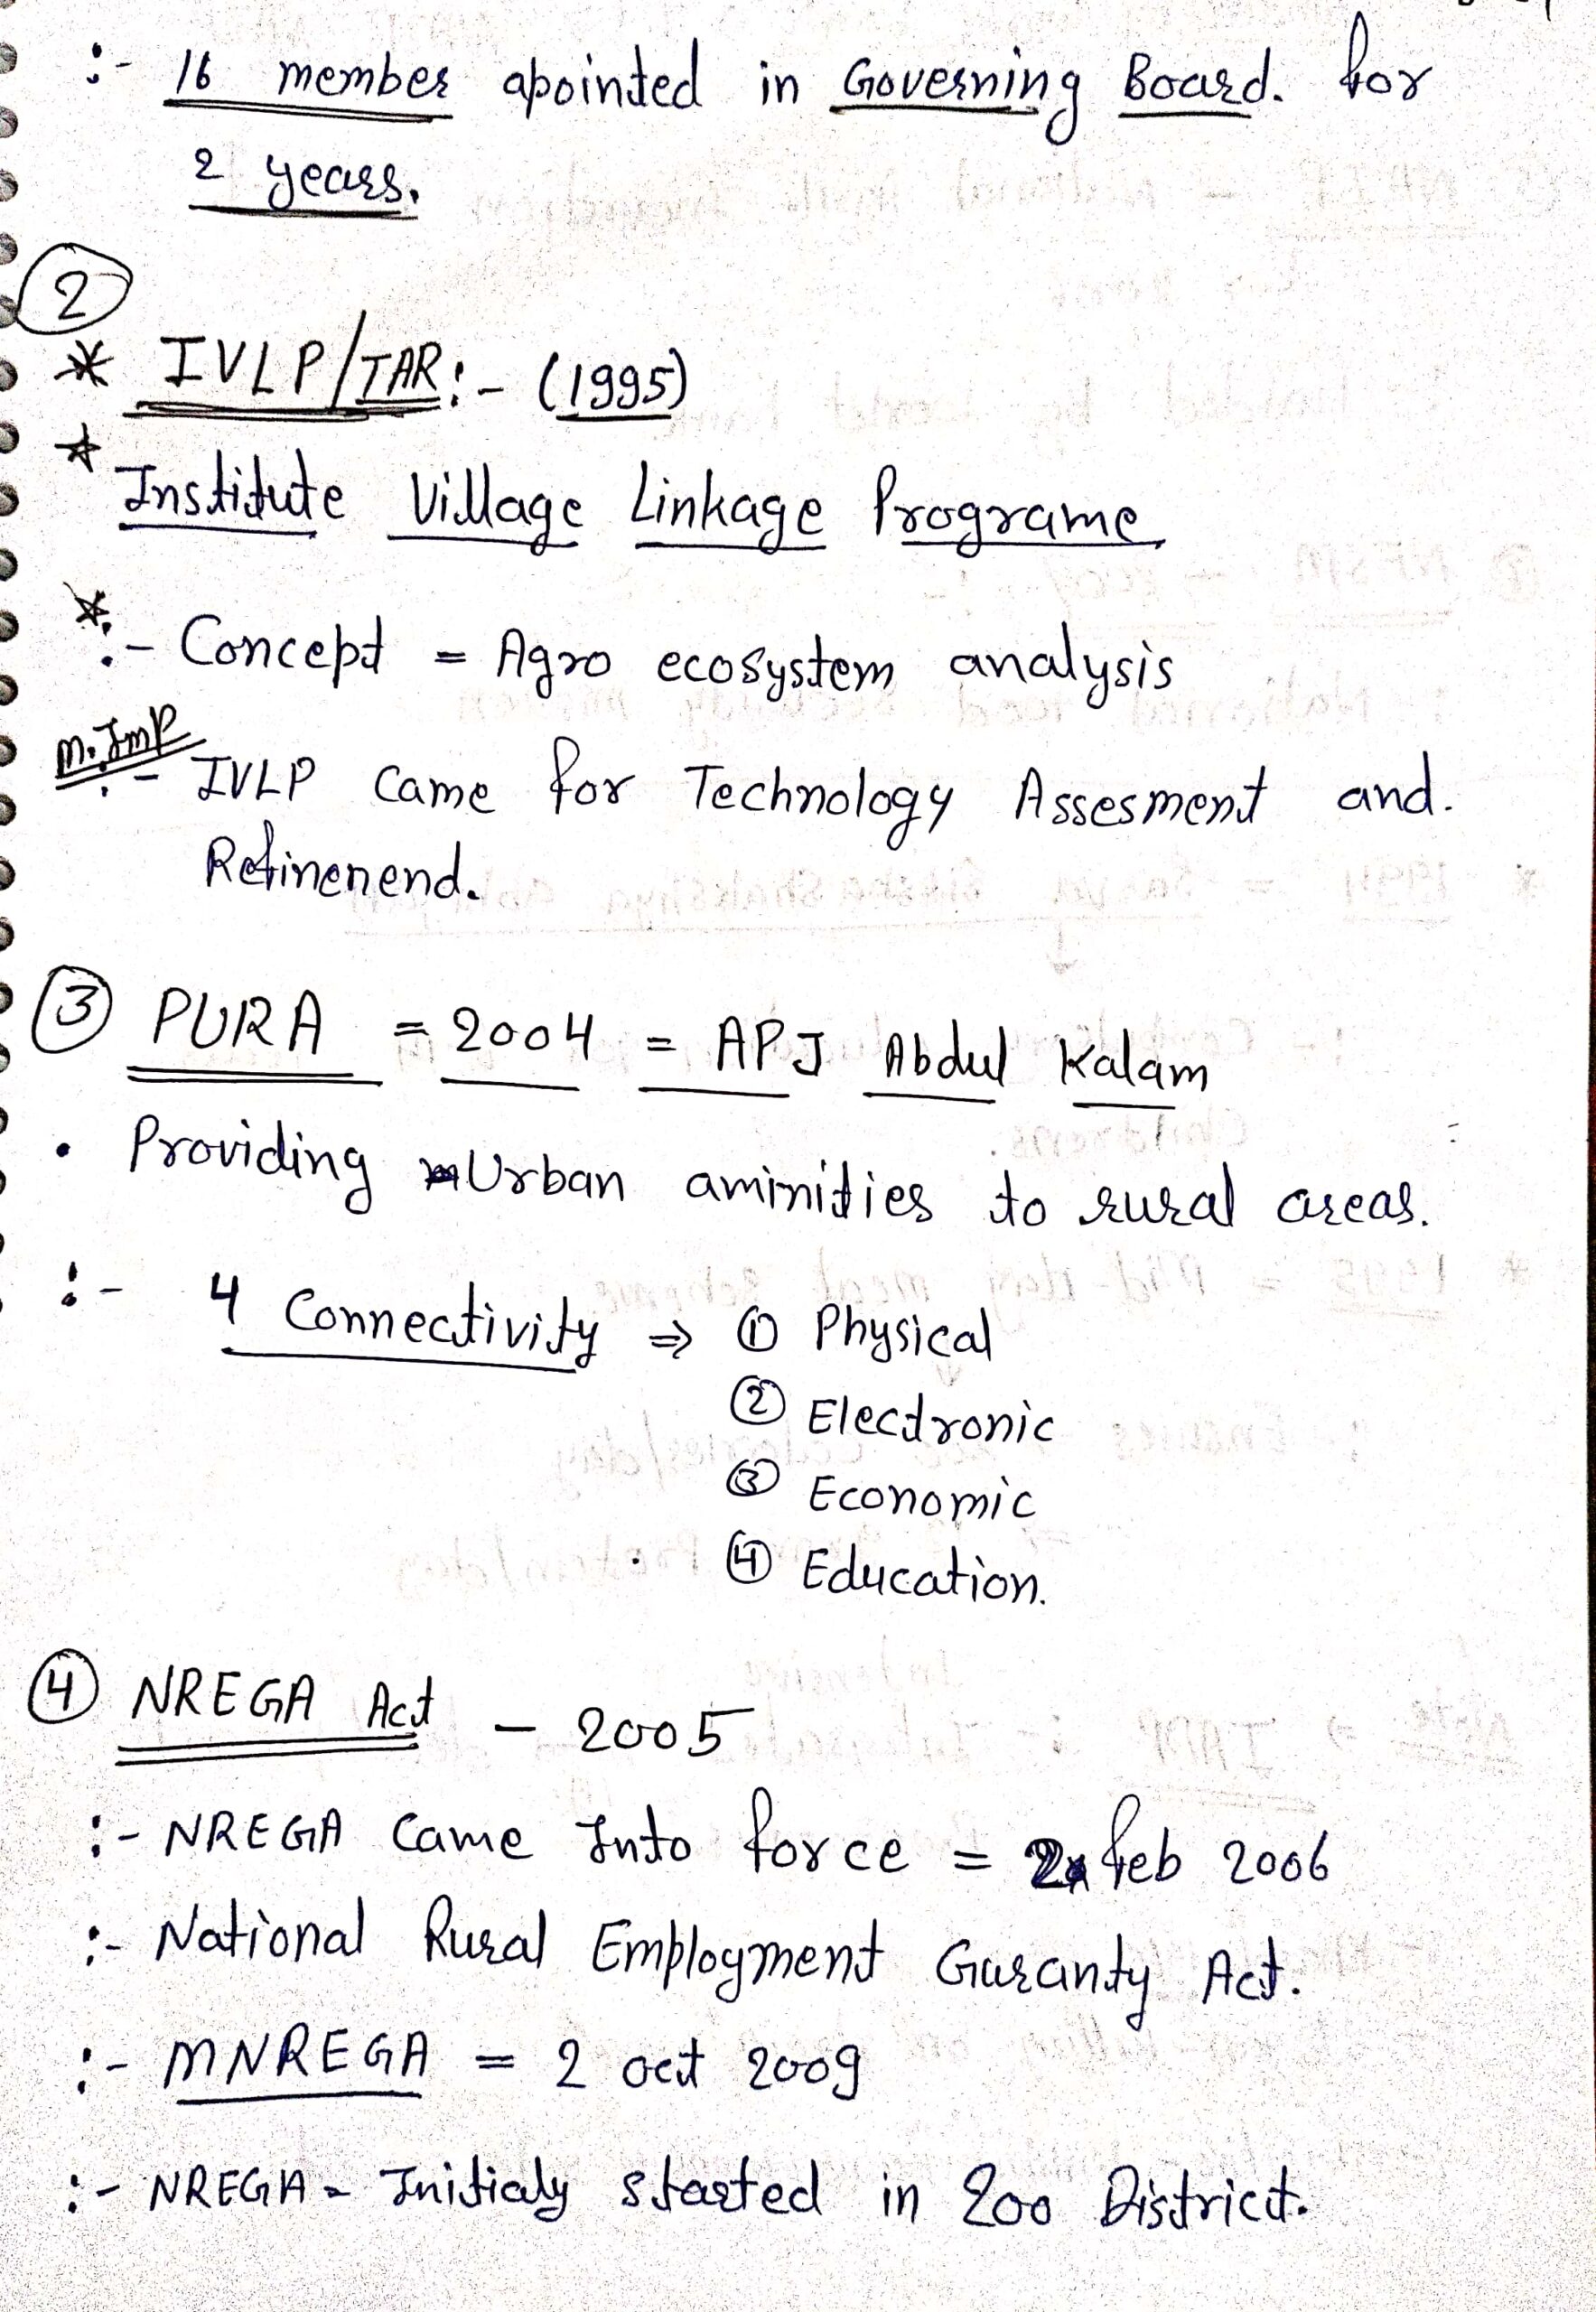 :- 16 member apointed in Governing Board. for
2 years.
2
* IVLP/TAR:- (1995)
* Institute Village Linkage Programe
*:- Concept = Agro ecosystem analysis
M.Imp
:- IVLP Came for Technology Assesment and.
Refinenend.
3 PURA = 2004 = APJ Abdul Kalam
• Providing Urban aminities to rural areas.
:- 4 Connectivity ⇒ ① Physical
② Electronic
③ Economic
④ Education.
④ NREGA Act - 2005
:- NREGA Came Into force = 2 feb 2006
:- National Rural Employment Guranty Act.
:- MNREGA = 2 oct 2009
:- NREGA = Initialy started in 200 District.